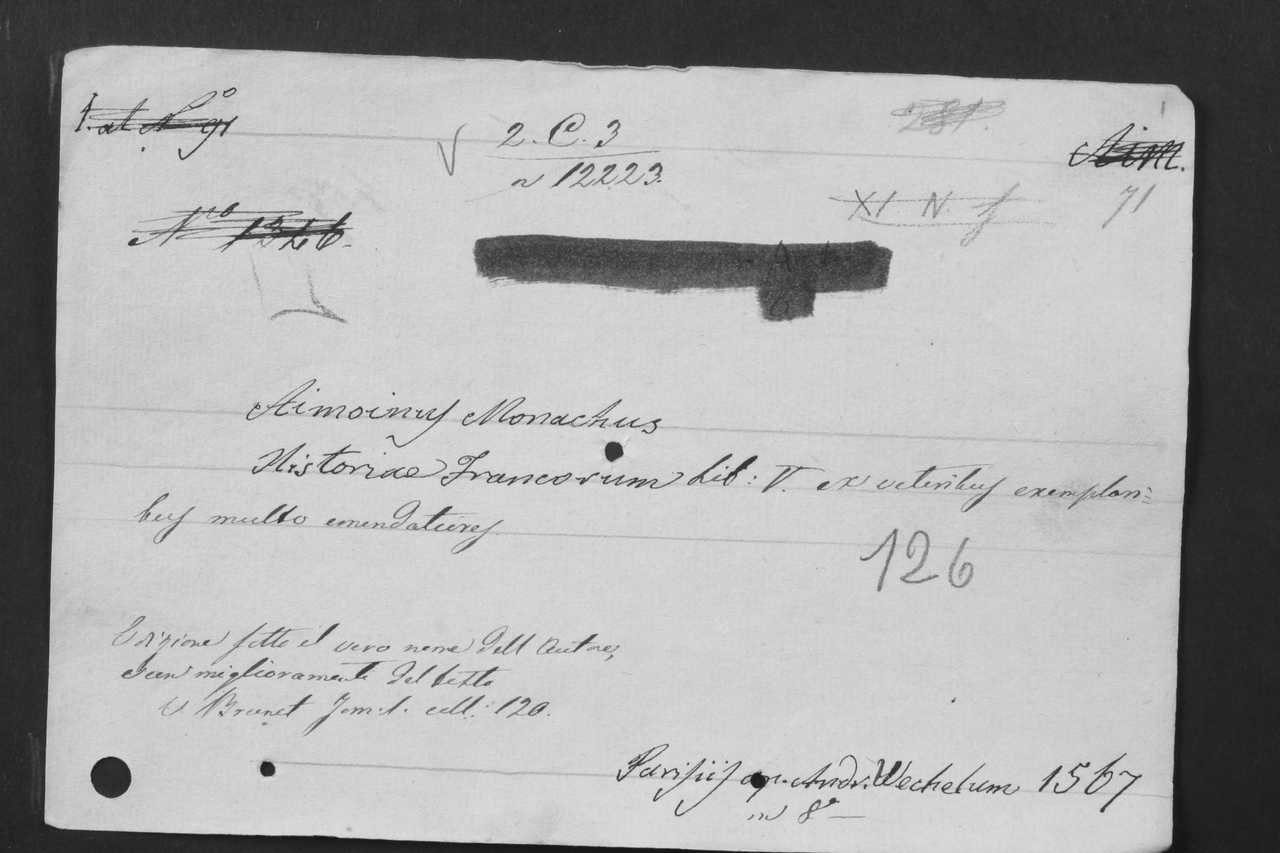 2. C. 3
12223.
71
Nº 1326.
XI N
Aimoinus Monachus
Historiae Francorum Lib: V. ex veteribus exemplari=
bus multo emendatiores
126
Edizione sotto il vero nome dell autore,
con miglioramenti del testo
V Brunet Tom: 1. coll: 120.
Parisiis ap. Andr. Wechelum 1567
in 8º